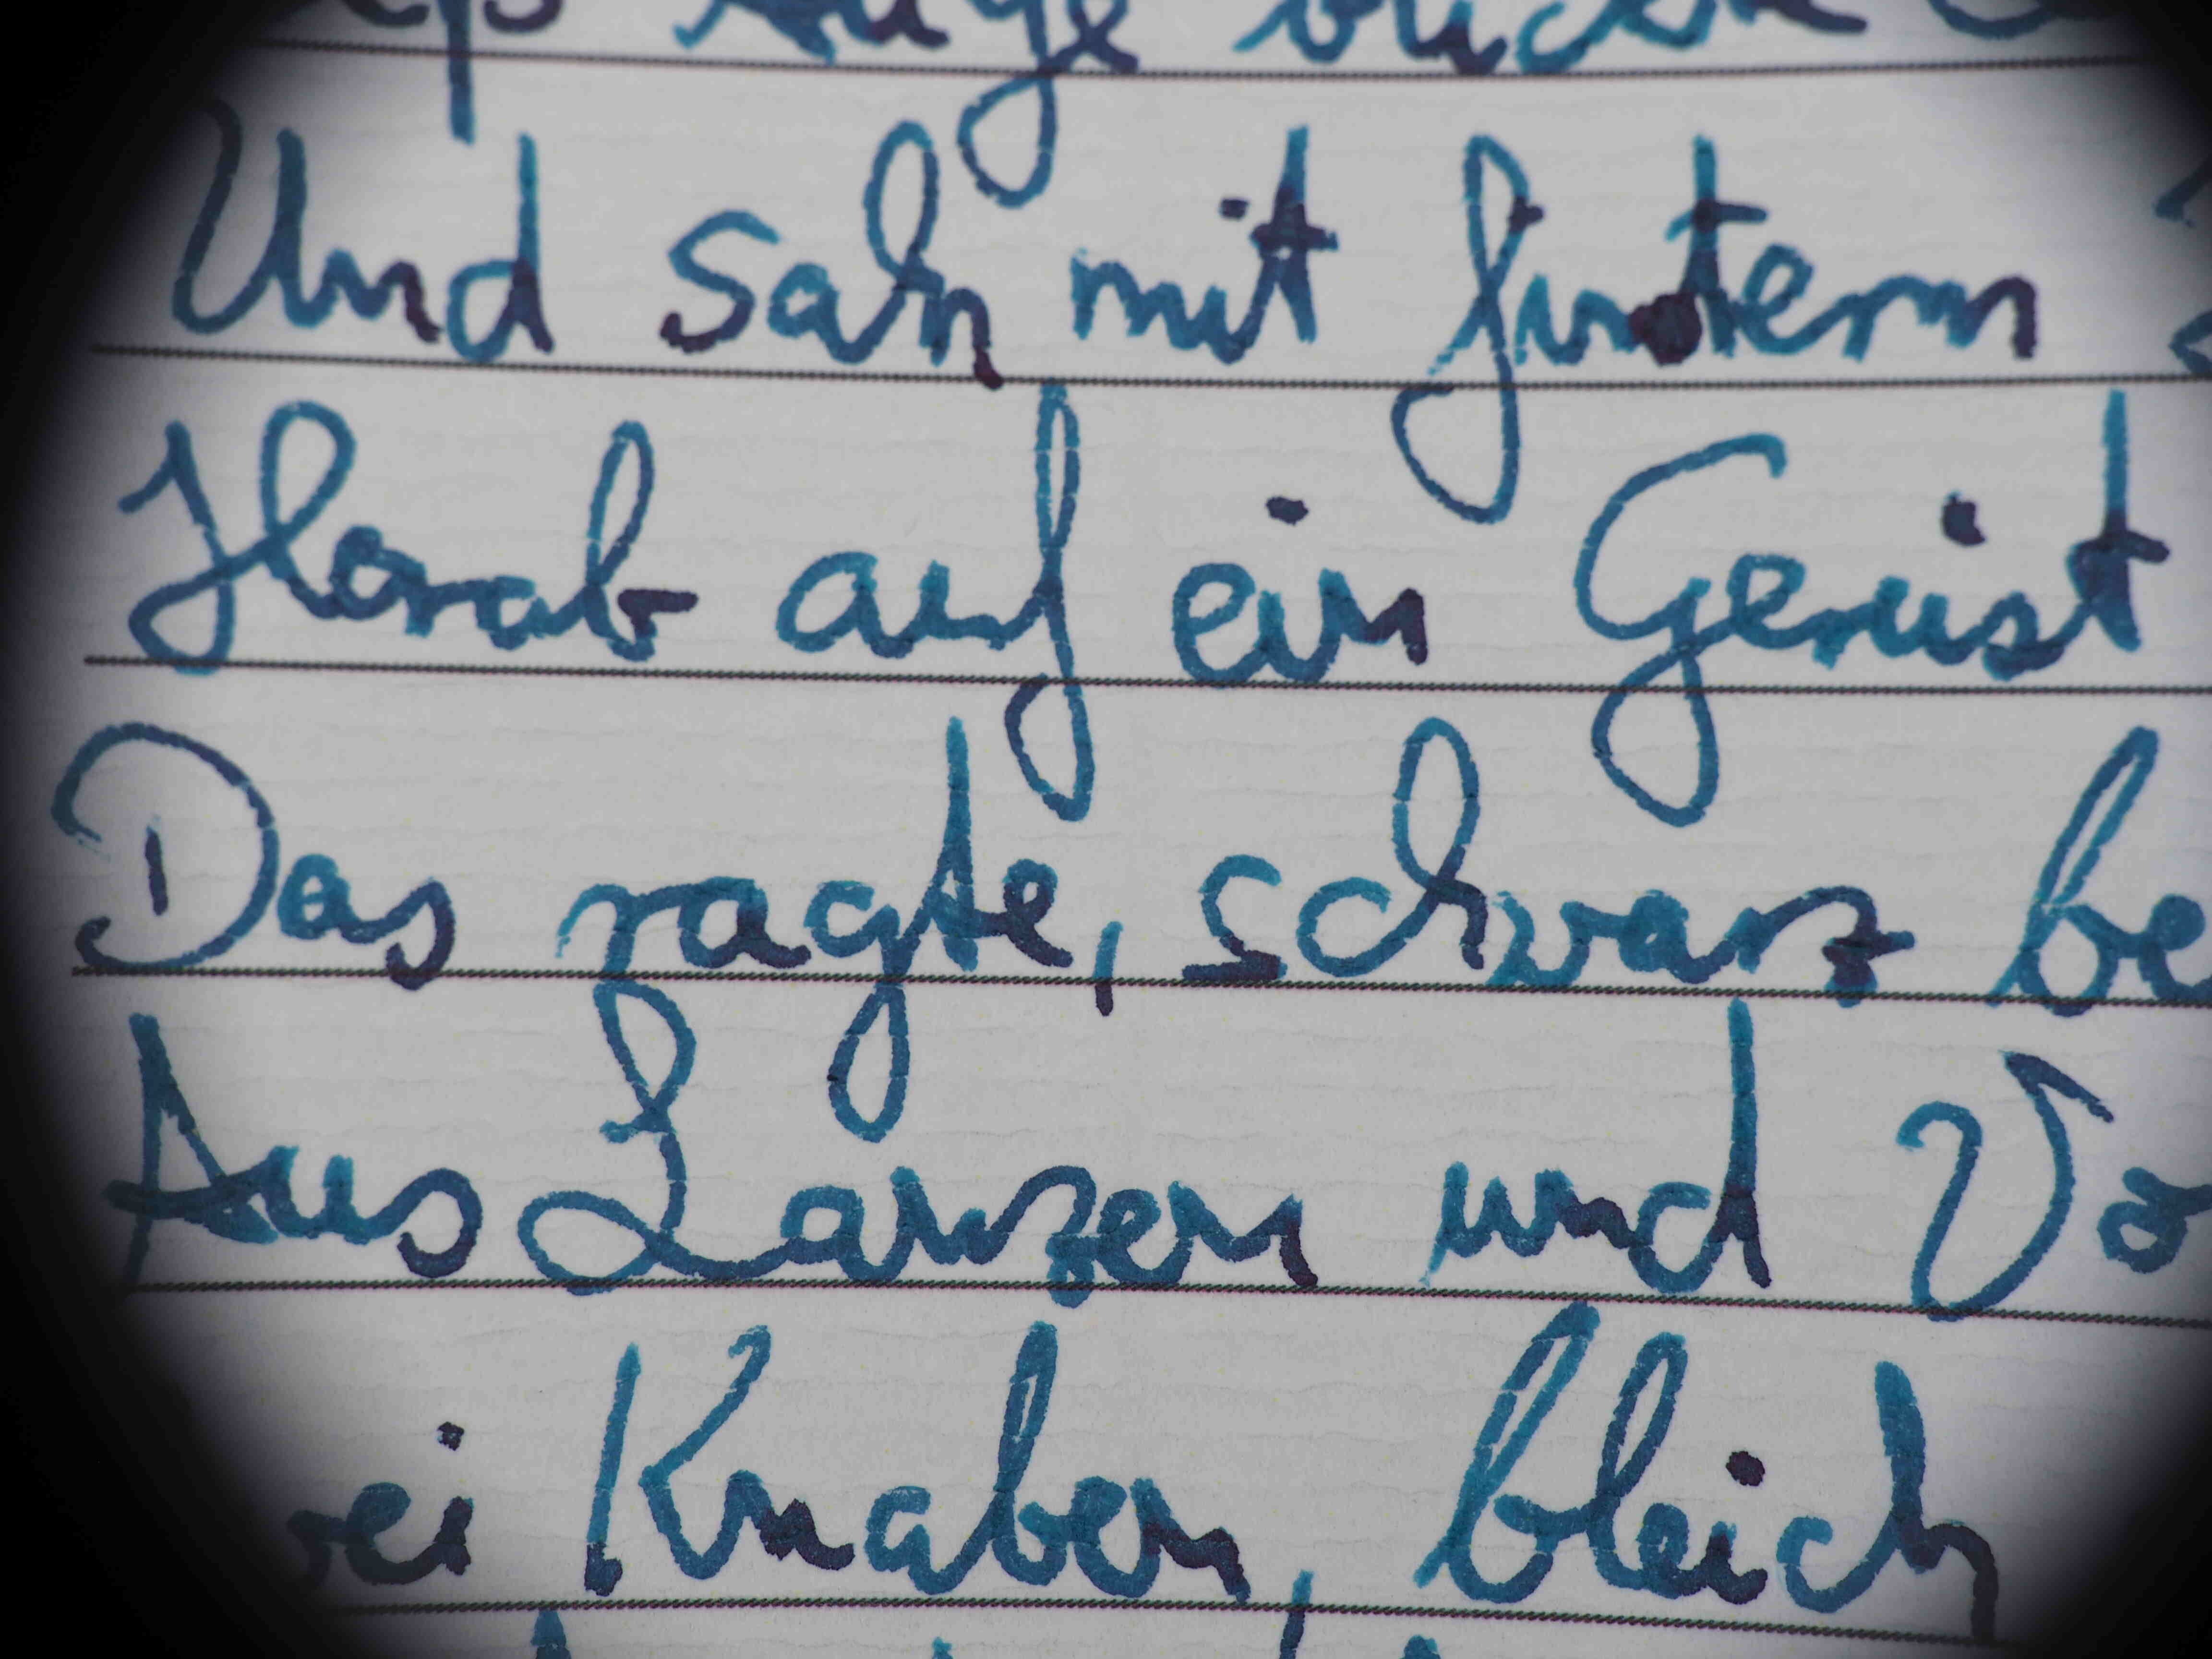 Auge blickte
Und sah mit finterm
Herab auf ein Gerüst
Das ragte, schwarz be
Aus Lanzen und Vo
ei Knaben, bleich